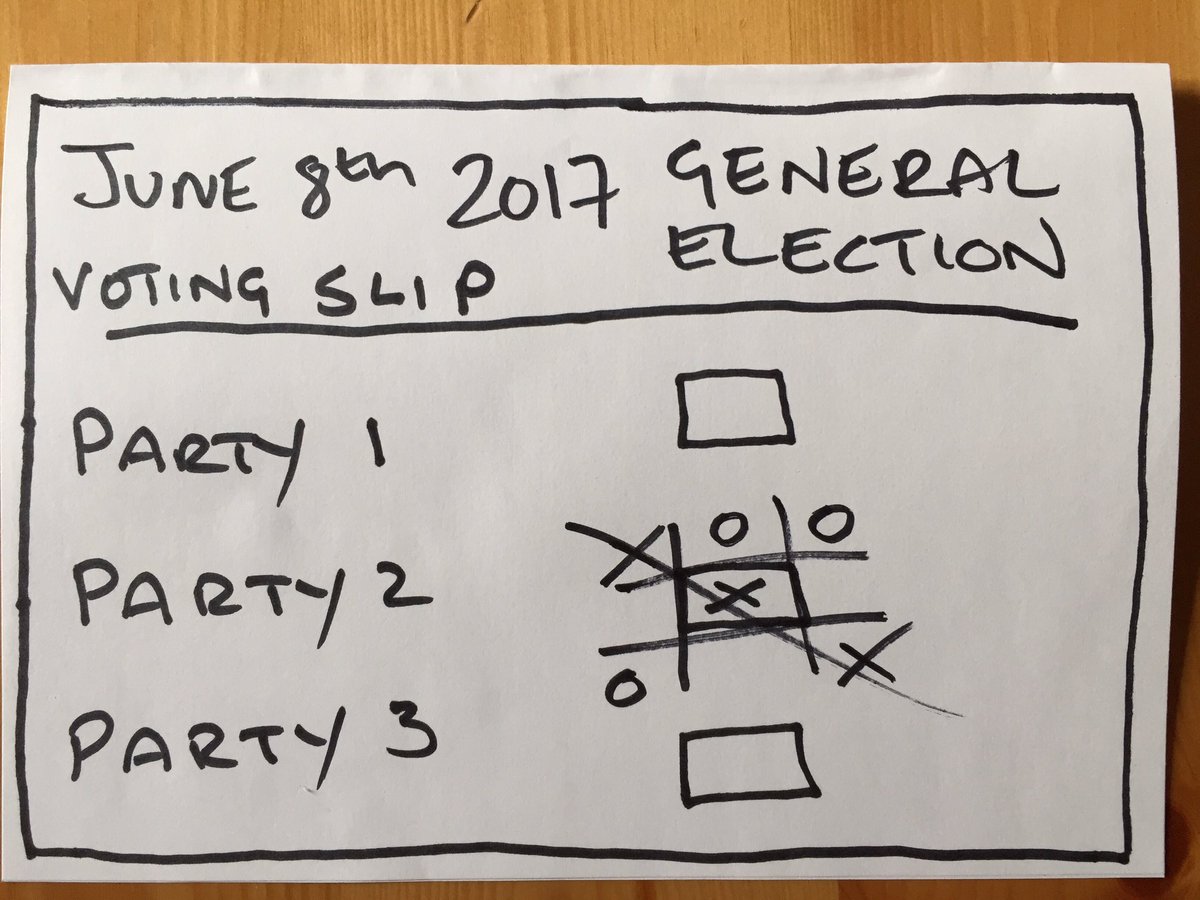 JUNE 8th 2017 GENERAL
ELECTION
VOTING SLIP
PARTY 1
X O O
PARTY 2
X
O X
PARTY 3